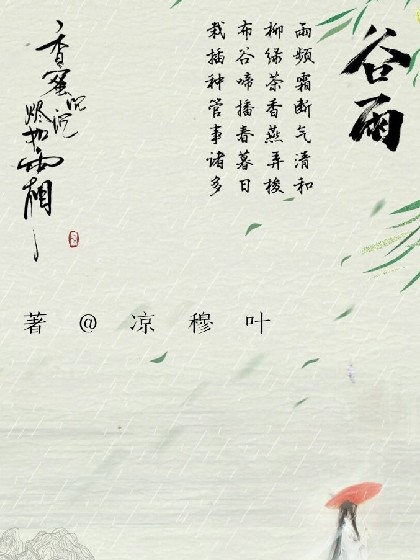 谷雨
雨频霜断气清和
柳绿茶香燕弄梭
布谷啼播春暮日
栽插种管事诸多
香蜜沉沉烬如霜
著@凉穆叶